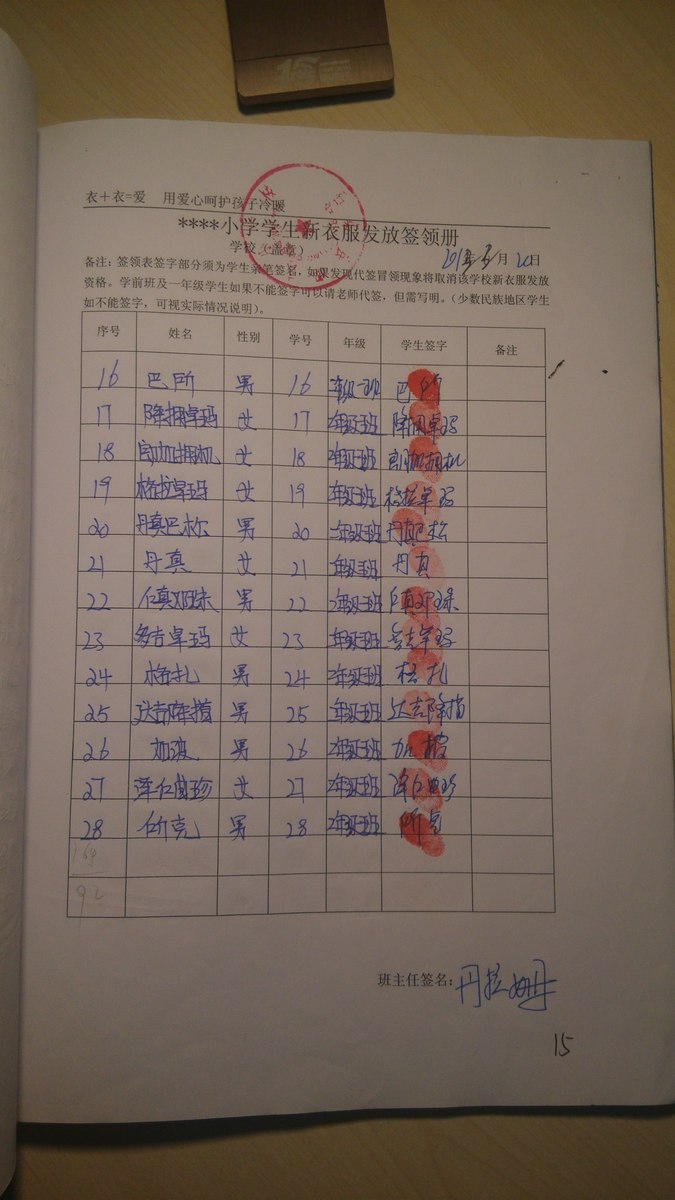 衣+衣=爱 用爱心呵护孩子冷暖
****小学学生新衣服发放签领册
学校（盖章） 月 20日
备注：签领表签字部分须为学生亲笔签名，如果发现代签冒领现象将取消该学校新衣服发放
资格。学前班及一年级学生如果不能签字可以请老师代签，但需写明。（少数民族地区学生
如不能签字，可视实际情况说明）。
序号 姓名 性别 学号 年级 学生签字 备注
16 巴所 男 16 巴所
17 降拥卓玛 女 17 2年级2班 降拥卓玛
18 郎加拥机 女 18 2年级2班 郎加拥机
19 格拉卓玛 女 19 2年级2班 格拉卓玛
20 丹真巴松 男 20 二年级2班 丹真巴松
21 丹真 女 21 2年级2班 丹真
22 仁真邓珠 男 22 2年级2班 仁真邓珠
23 多吉卓玛 女 23 2年级2班 多吉卓玛
24 格扎 男 24 2年级2班 格扎
25 降措 男 25 2年级2班 降措
26 加波 男 26 2年级2班
27 泽仁 珍 女 27 2年级2班 泽仁 珍
28 男 28 2年级2班
班主任签名：丹拉姆
15